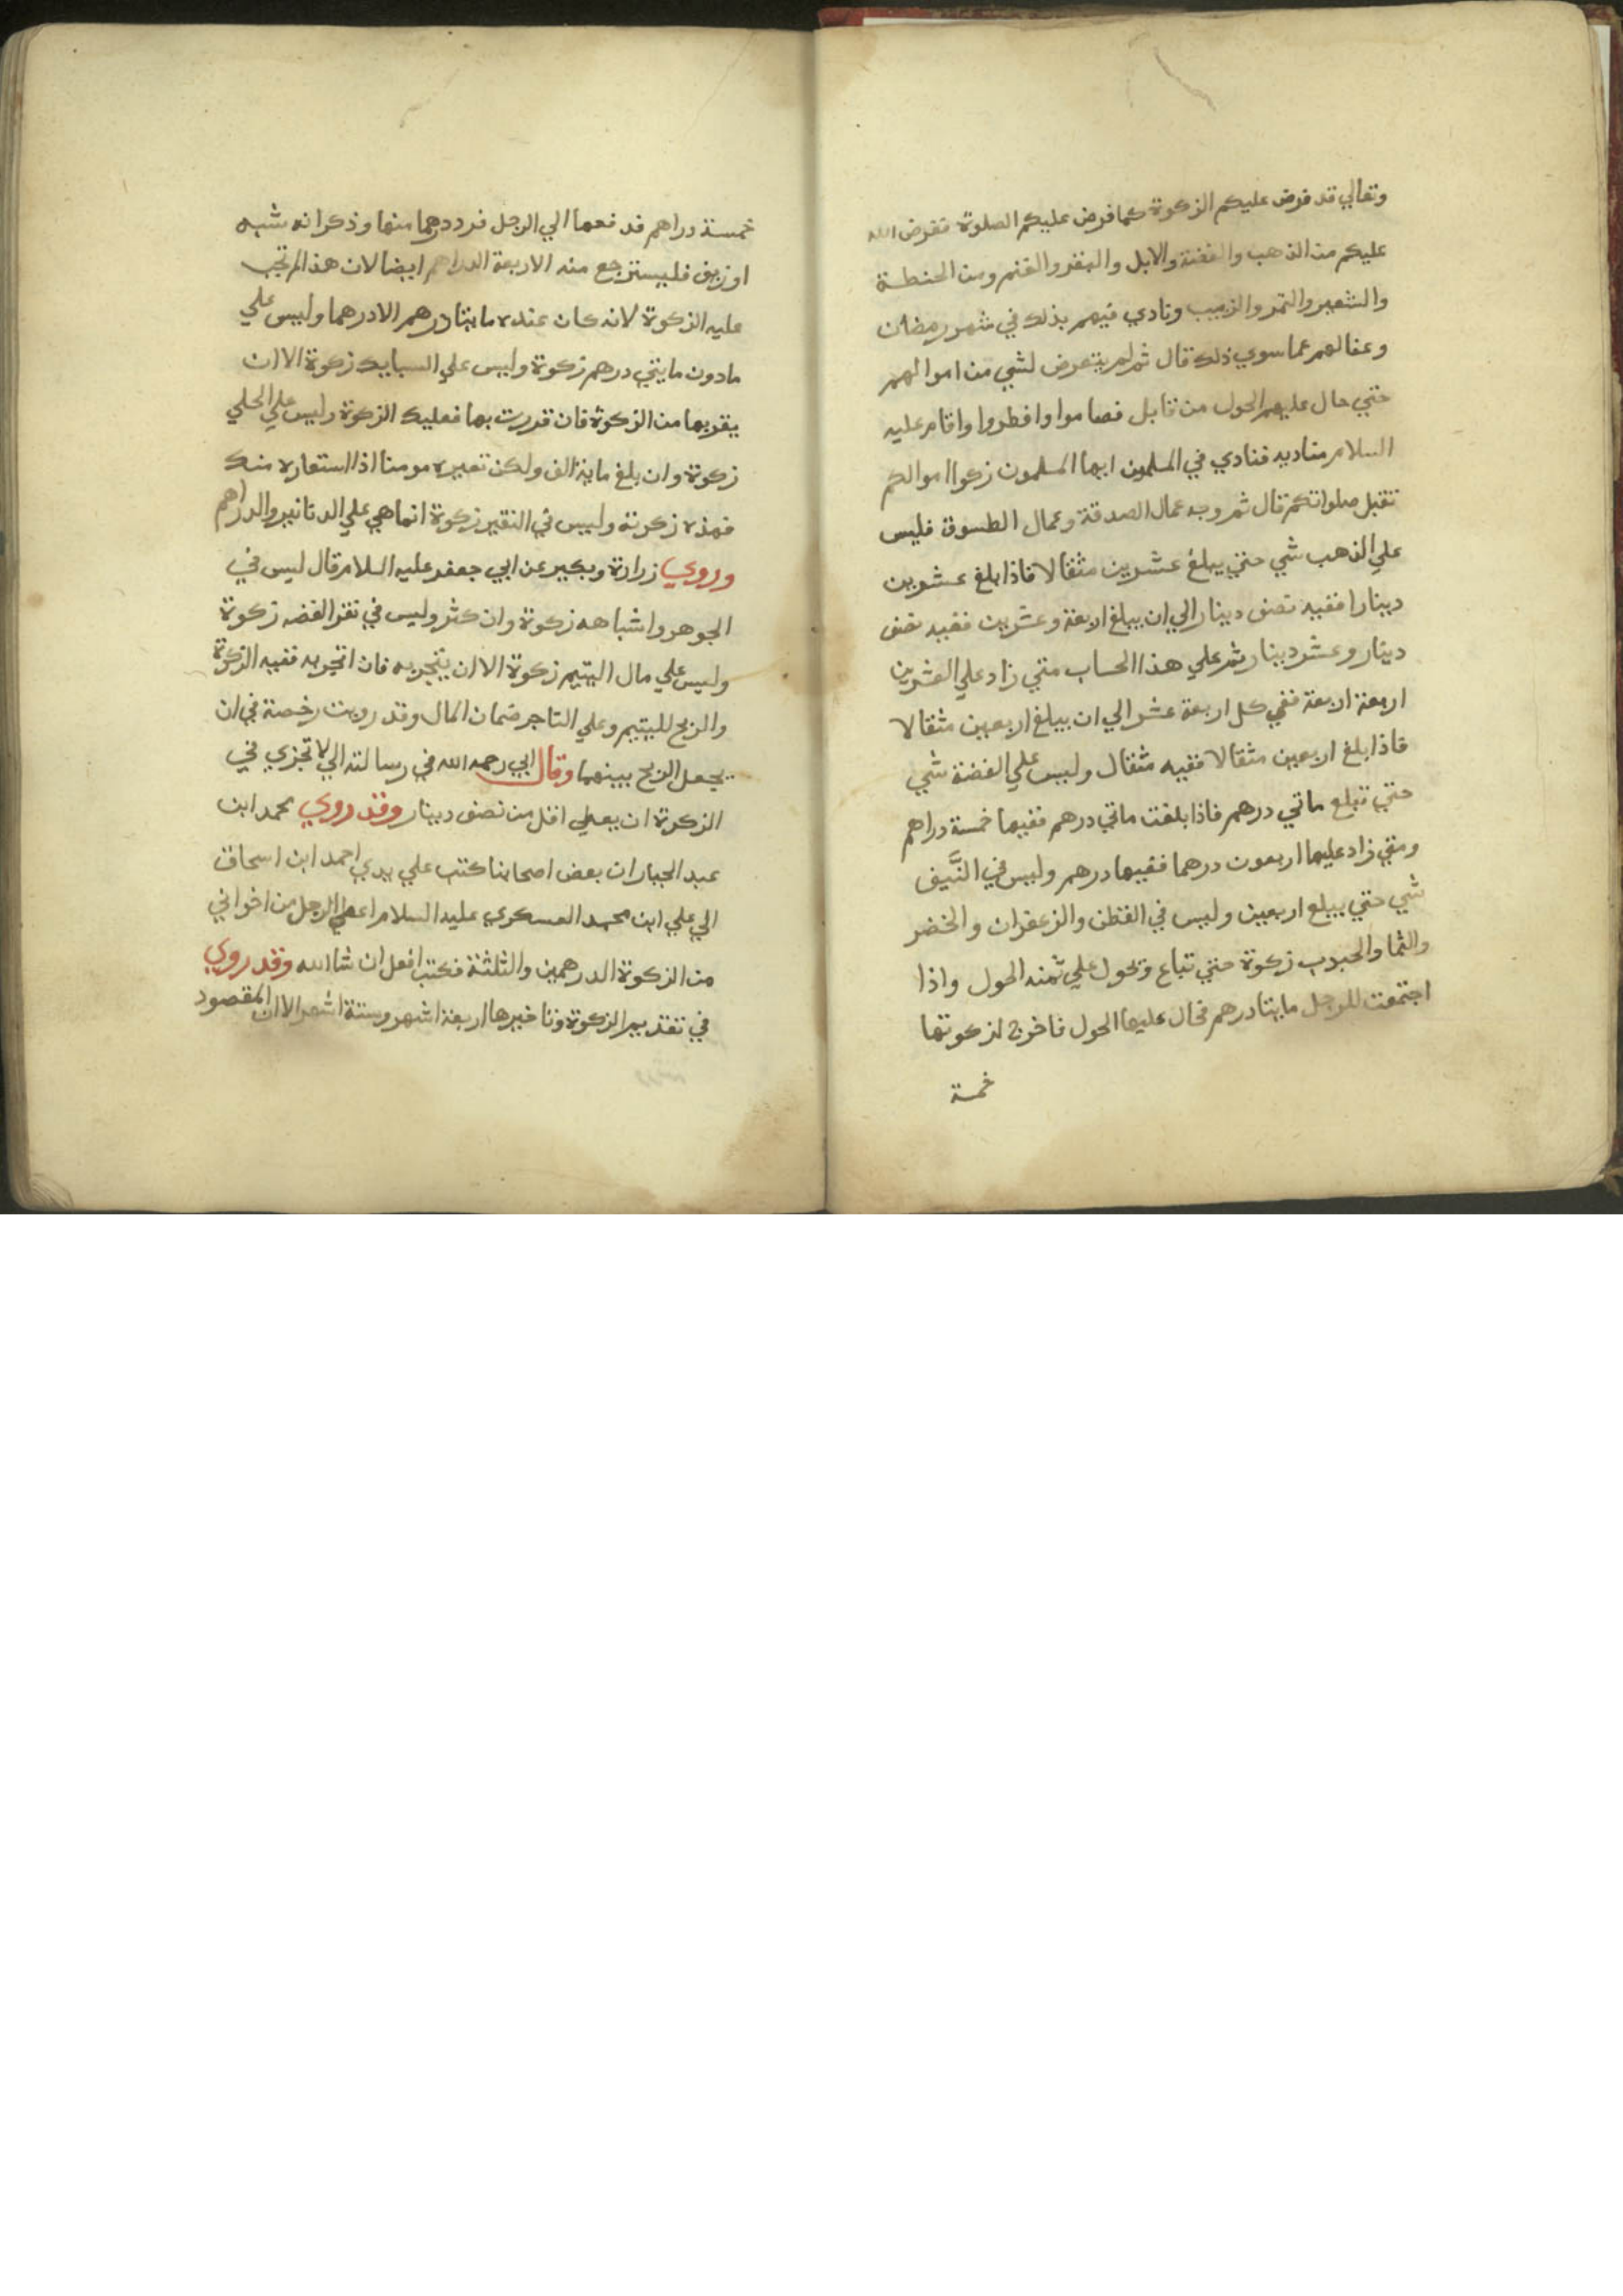 وتعالي قد فرض عليكم الزكوة كما فرض عليكم الصلوة ففرض الله
عليكم من الذهب والفضة والابل والبقر والغنم ومن الحنطة
والشعير والتمر والزبيب ونادي فيهم بذلك في شهر رمضان
وعفا لهم عما سوي ذلك قال ثم لم يتعرض لشي من اموالهم
حتي حال عليهم الحول من قابل فصاموا وافطروا واقام عليه
السلام مناديه فنادي في المسلمين ايها المسلمون زكوا اموالكم
تقبل صلواتكم قال ثم وجه عمال الصدقة وعمال الطسوق فليس
علي الذهب شي حتي يبلغ عشرين مثقالا فاذا بلغ عشرين
دينارا ففيه نصف دينار الي ان يبلغ اربعة وعشرين ففيه نصف
دينار وعشر دينار ثم علي هذا الحساب متي زاد علي العشرين
اربعة اربعة ففي كل اربعة عشر الي ان يبلغ اربعين مثقالا
فاذا بلغ اربعين مثقالا ففيه مثقال وليس علي الفضة شي
حتي تبلع ماتي درهم فاذا بلغت ماتي درهم ففيها خمسة دراهم
ومتي زاد عليها اربعون درهما ففيها درهم وليس في النَّيف
شي حتي يبلع اربعين وليس في القطن والزعفران والخضر
والثما والحبوب زكوة حتي تباع ويحول علي ثمنه الحول واذا
اجتمعت للرجل مايتا درهم فحال عليها الحول فاخرج لزكوتها
خمسة
خمسة دراهم فدفعها الي الرجل فرد درهما منها وذكر انه شبه
او زيف فليسترجع منه الاربعة الدراهم ايضا لان هذا لم تجب
عليه الزكوة لانه كان عنده مايتا درهم الا درهما وليس علي
مادون مايتي درهم زكوة وليس علي السبايك زكوة الا ان
يفر بها من الزكوة فان فررت بها فعليك الزكوة وليس علي الحلي
زكوة وان بلغ ماية الف ولكن تعيره مومنا اذا استعاره منك
فهذه زكوته وليس في النقير زكوة انما هي علي الدنانير والدراهم
وروي زرارة وبكير عن ابي جعفر عليه السلام قال ليس في
الجوهر واشباهه زكوة وان كثر وليس في نقر الفضه زكوة
وليس علي مال اليتيم زكوة الا ان يتجر به فان اتجر به ففيه الزكوة
والربح لليتيم وعلي التاجر ضمان المال وقد رويت رخصة في ان
يجعل الربح بينهما وقال ابي رحمه الله في رسالته الي لا تجزي في
الزكوة ان يعطي اقل من نصف دينار وقد روي محمد ابن
عبد الجبار ان بعض اصحابنا كتب علي يدي احمد ابن اسحاق
الي علي ابن محمد العسكري عليه السلام اعطي الرجل من اخواني
من الزكوة الدرهمين والثلثة فكتب افعل ان شا الله وقد روي
في تقديم الزكوة وتاخيرها اربعة اشهر وستة اشهر الا ان المقصود